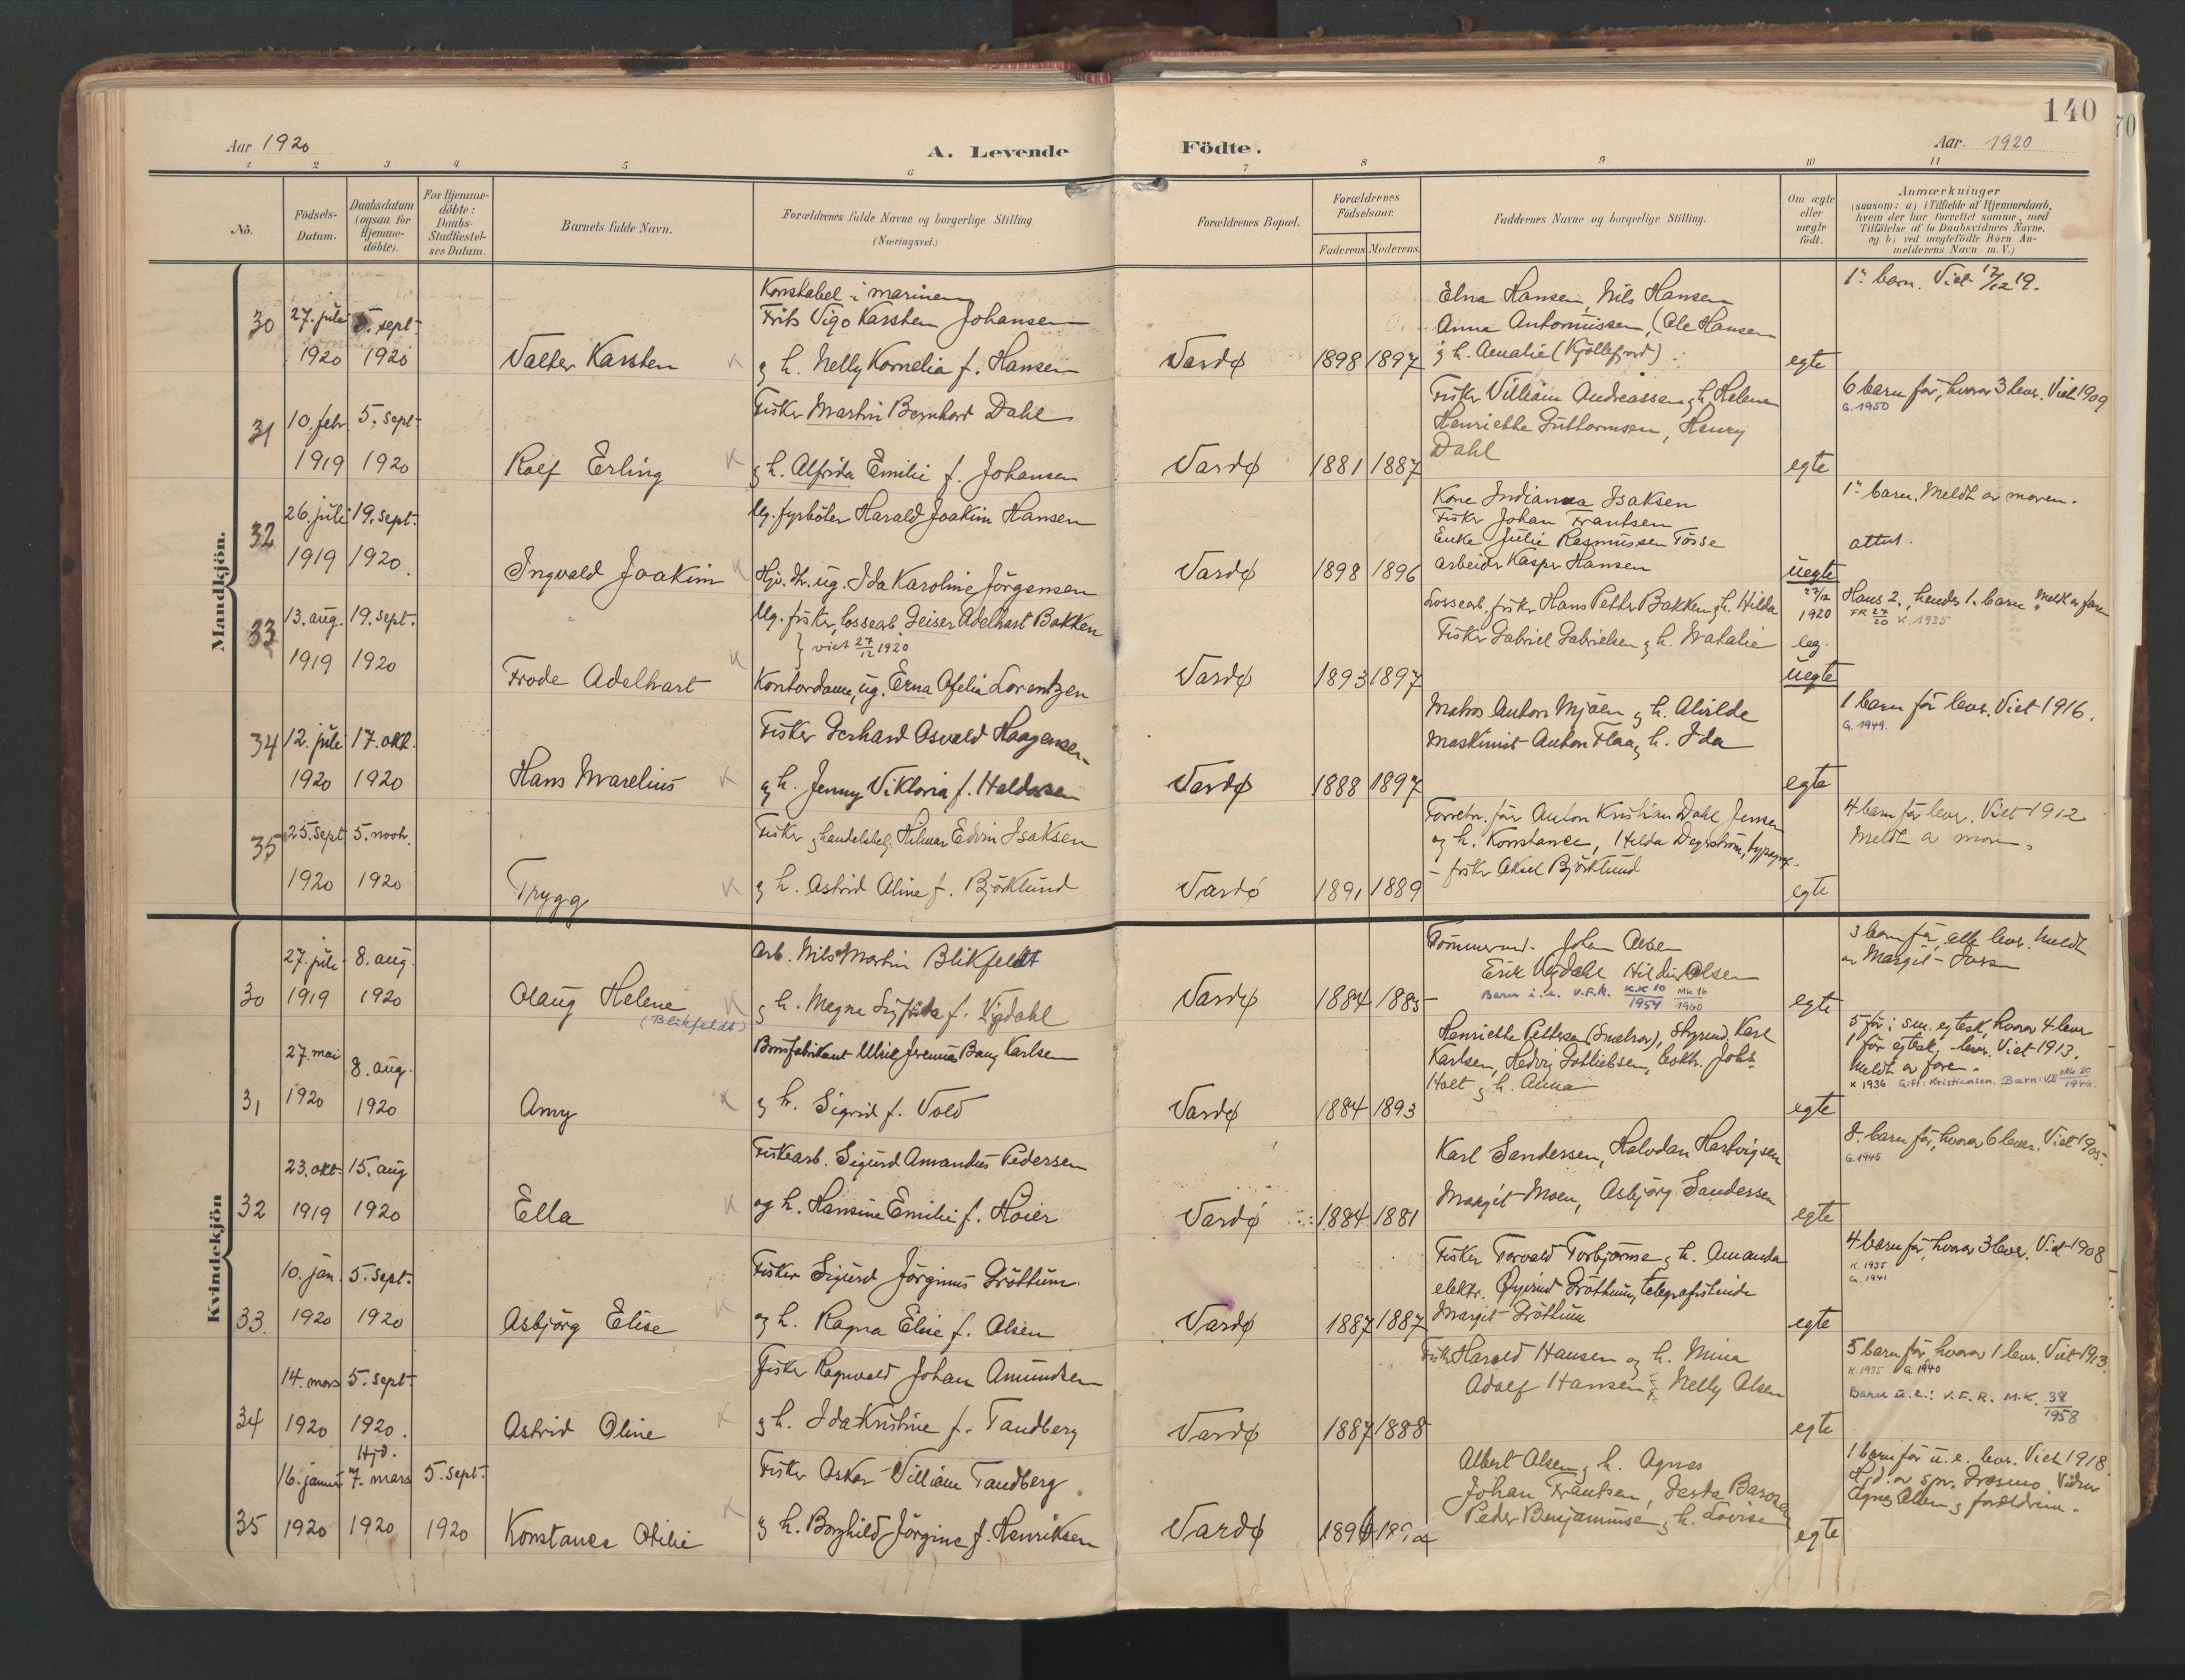 140
Aar 1920
A. Levende Födte.
Aar. 1920
1 2 3 4 5 6 7 8 9 10 11
No.
Födsels-Datum.
Daabsdatum (ogsaa for Hjemme-döbte).
For Hjemme-döbte: Daabs-Stadfæstel-ses Datum.
Barnets fulde Navn.
Forældrenes fulde Navne og borgerlige Stilling (Næringsvei.)
Forældrenes Bopæl.
Forældrenes Födselsaar.
Faderens Moderens
Faddernes Navne og borgerlige Stilling.
Om ægte eller uægte födt.
Anmærkninger
(saasom: a) i Tilfælde af Hjemmedaab, hvem der har forrettet samme, med Tilföielse af to Daabsvidners Navne, og b) ved uægtefödte Börn An-melderens Navn m. V.)
Mandkjön.
30 27. juli 1920 5. sept. 1920
Valter Karsten
Konstabel i marinen
Frits Vigo Karsten Johansen
g h. Nelly Kornelia f. Hansen
Vardø 1898 1897
Elna Hansen, Nils Hansen
Anna Antonissen, (Ole Hansen
g h. Amalie (Kjöllefjord)
egte
1ste barn. Viet 17/12 19.
31 10. febr. 1919 5. sept. 1920
Rolf Erling
Fisker Martin Bernhard Dahl
g h. Alfrida Emilie f. Johansen
Vardø 1881 1887
Fisker Villiam Andreassen g h. Helene
Henriette Guttormsen, Henry
Dahl
egte
6 barn før, hvorav 3 lever. Viet 1909
G. 1950
32 26. juli 1919 19. sept. 1920.
Ingvald Joakim
Ug. fyrböter Harald Joakim Hansen
Hjv. dtr. ug. Ida Karoline Jörgensen
Vardø 1898 1896
Kone Indianna Isaksen
Fisker Johan Frantsen
Enke Julie Rasmussen Tosse
arbeider Kasper Hansen
uegte
1ste barn. Meldt av moren.
attest.
33 13. aug. 1919 19. sept. 1920
Frode Adelhart
Ug. fisker, lossearb. Geiser Adelhart Bakken
} viet 27/12 1920
Kontordame, ug. Erna Ofelia Lorentzen
Vardø 1893 1897
Lossearb. fisker Hans Petter Bakken g h. Hilda
Fisker Gabriel Gabrielsen g h. Natalie
27/12 1920 leg.
uegte
Hans 2., hendes 1. barn. Meldt av faren
FR 27/20 K. 1935
34 12. juli 1920 17. okt. 1920
Hans Marelius
Fisker Gerhard Osvald Haagensen
g h. Jenny Viktoria f. Haldorsen
Vardø 1888 1897
Matros Anton Mjöen g h. Alvilde
Maskinist Anton Flaa g h. Ida
egte
1 barn før lever. Viet 1916.
G. 1949.
35 25. sept. 1920 5. novbr. 1920
Trygg
Fisker g handelsbetj. Hilmar Edvin Isaksen
g h. Astrid Aline f. Björklund
Vardø 1891 1889
Forretn. före Anton Kristian Dahl Jensen
og h. Konstance, Hilda Degerström, typograf
- fisker Aksel Björklund
egte
4 barn før lever. Viet 1912
Meldt av mor.
Kvindekjön
30 27. juli 1919 8. aug. 1920
Olaug Helene
(Blikfeldt)
Arb. Nils Martin Blikfeldt
g h. Magna Sigfrida f. Vigdahl
Vardø 1884 1885
Tömmermd. Johan Olsen
Erik Vigdahl Hildur Olsen
Barn u.e. V.F.R. K.K 10/1954 Mk 16/1960
egte
3 barn før, alle lever. Meldt
av Margit
31 27. mai 1920 8. aug. 1920
Amy
Brusfabrikant Ulrik Jeremias Bang Karlsen
g h. Sigrid f. Vold
Vardø 1884 1893
Henriette Pettersen (Smelror), Styrmd. Karl
Karlsen, Hedvig Gotliebsen, Johs.
Holt g h. Anna
egte
5 før i sm. egtesk., hvorav 4 lever
1 før egtesk. lever. Viet 1913.
Meldt av faren.
K 1936 Gift: Kristiansen. Barn: VII Mk 20/1946.
32 23. okt. 1919 15. aug. 1920
Ella
Fiskearb. Sigurd Amandus Pedersen
og h. Hansine Emilie f. Höier
Vardø 1884 1881
Karl Sandersen, Halvdan Hartvigsen
Margit Moen, Asbjörg Sandersen
egte
8. barn før, hvorav 6 lever. Viet 1905.
G. 1945
33. 10. jan. 1920 5. sept. 1920
Asbjörg Elise
Fisker Sigurd Jörginus Gröttum
og h. Ragna Elise f. Olsen
Vardø 1887 1887
Fisker Torvald Torbjörnse g h. Amanda
elektr. Öyvind Gröttum, telegrafistinde
Margit Gröttum
egte
4 barn før, hvorav 3 lever. Viet 1908
K. 1935
G. 1941
34 14. mars 1920 5. sept. 1920.
Astrid Oline
Fisker Ragnvald Johan Amundsen
g h. Ida Kristine f. Tandberg
Vardø 1887 1888
Fisker Harald Hansen og h. Mina
Adolf Hansen g Nelly Olsen
egte
5 barn før, hvorav 1 lever. Viet 1913.
K. 1935 G. 1940
Barn u.e.: V.F.R. M.K. 38/1958
35 16. januar 1920 Hjd. 7. mars 1920 5. sept. 1920
Konstance Otilie
Fisker Oskar Villiam Tandberg
g h. Borghild Jörgine f. Henriksen
Vardø 1896
Albert Olsen g h. Agnes
Johan Frantsen, Gerda
Peder Benjaminsen g h. Lovise
egte
1 barn før u.e. lever. Viet 1918.
Hjd. av spr. Grasmo. Vidner
Agnes Olsen g forældrene.